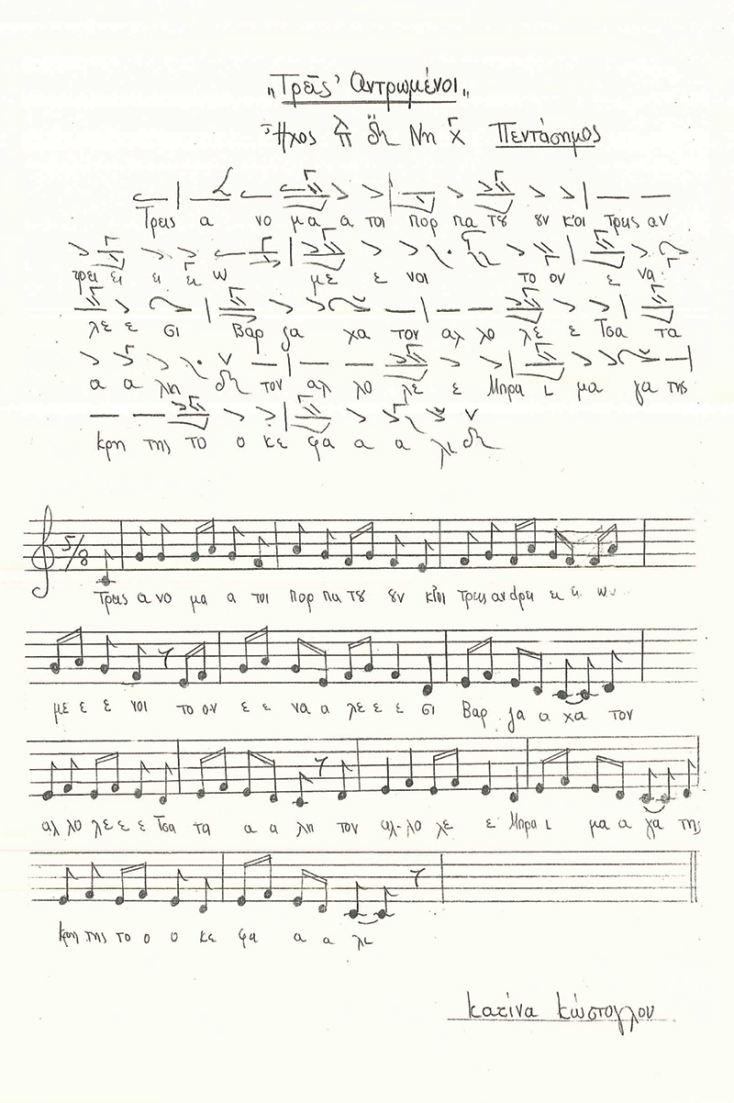 „Τρεῖς Ἀντρωμένοι„
Ἦχος Νη Πεντάσημος
Τρεις α νο μα α τοι πορ πα τȣ ȣν κιοι τρεις αν
τρει ει ει ει ω με ε νοι το ον ε να
λε ε σι Βαρ γα χα τον αλ λο λε ε Τσα τα
α α λη τον αλ λο λε ε Μπρα ι μα γα της
κρη της το ο κε φα α α λι
5/8
Τρεις α νο μα α τοι πορ πα τȣ ȣν κιοι τρεις αν δρε ει ει ω
με ε ε νοι το ον ε ε να α λε ε ε σι Βαρ γα α χα τον
αλ λο λε ε ε Τσα τα α α λη τον αλ-λο λε ε Μπρα ι μα α γα της
κρη της το ο ο κε φα α α λι
Κατίνα Κώστογλου